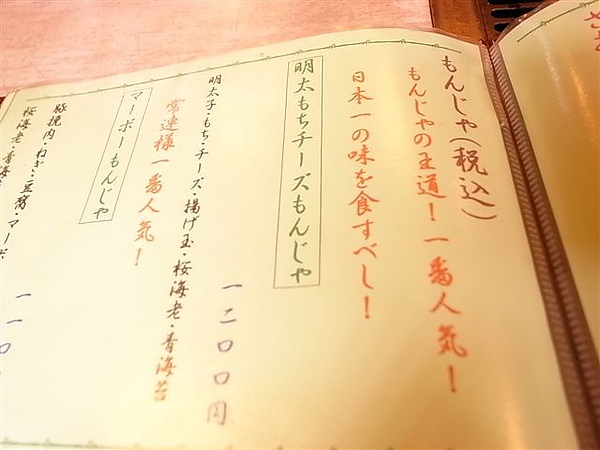 もんじゃ(税込)
もんじゃの王道!一番人気!
日本一の味を食すべし!
明太もちチーズもんじゃ
明太子・もち・チーズ・揚げ玉・桜海老・青海苔
一二〇〇円
常連様一番人気!
マーボーもんじゃ
豚挽肉・ねぎ・豆腐・マーボ
桜海老・青海
一一〇